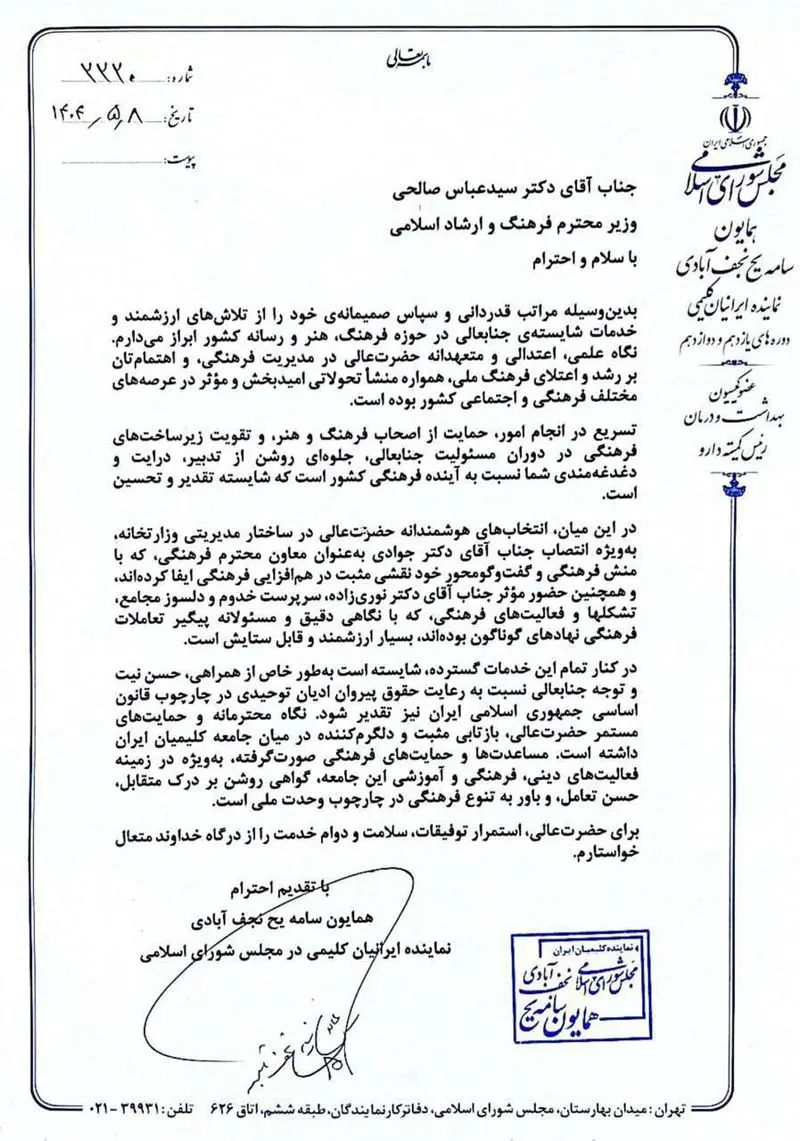 باسمه‌تعالی
شماره: ۲۲۲۰
تاریخ: ۱۴۰۴/۵/۸
پیوست:
جمهوری اسلامی ایران
مجلس شورای اسلامی
همایون
سامه یح نجف آبادی
نماینده ایرانیان کلیمی
دوره های یازدهم و دوازدهم
عضو کمیسیون
بهداشت و درمان
رئیس کمیته دارو
جناب آقای دکتر سیدعباس صالحی
وزیر محترم فرهنگ و ارشاد اسلامی
با سلام و احترام
بدین‌وسیله مراتب قدردانی و سپاس صمیمانه‌ی خود را از تلاش‌های ارزشمند و
خدمات شایسته‌ی جنابعالی در حوزه فرهنگ، هنر و رسانه کشور ابراز می‌دارم.
نگاه علمی، اعتدالی و متعهدانه حضرت‌عالی در مدیریت فرهنگی، و اهتمام‌تان
بر رشد و اعتلای فرهنگ ملی، همواره منشأ تحولاتی امیدبخش و مؤثر در عرصه‌های
مختلف فرهنگی و اجتماعی کشور بوده است.
تسریع در انجام امور، حمایت از اصحاب فرهنگ و هنر، و تقویت زیرساخت‌های
فرهنگی در دوران مسئولیت جنابعالی، جلوه‌ای روشن از تدبیر، درایت و
دغدغه‌مندی شما نسبت به آینده فرهنگی کشور است که شایسته تقدیر و تحسین
است.
در این میان، انتخاب‌های هوشمندانه حضرت‌عالی در ساختار مدیریتی وزارتخانه،
به‌ویژه انتصاب جناب آقای دکتر جوادی به‌عنوان معاون محترم فرهنگی، که با
منش فرهنگی و گفت‌وگومحور خود نقشی مثبت در هم‌افزایی فرهنگی ایفا کرده‌اند،
و همچنین حضور مؤثر جناب آقای دکتر نوری‌زاده، سرپرست خدوم و دلسوز مجامع،
تشکلها و فعالیت‌های فرهنگی، که با نگاهی دقیق و مسئولانه پیگیر تعاملات
فرهنگی نهادهای گوناگون بوده‌اند، بسیار ارزشمند و قابل ستایش است.
در کنار تمام این خدمات گسترده، شایسته است به‌طور خاص از همراهی، حسن نیت
و توجه جنابعالی نسبت به رعایت حقوق پیروان ادیان توحیدی در چارچوب قانون
اساسی جمهوری اسلامی ایران نیز تقدیر شود. نگاه محترمانه و حمایت‌های
مستمر حضرت‌عالی، بازتابی مثبت و دلگرم‌کننده در میان جامعه کلیمیان ایران
داشته است. مساعدت‌ها و حمایت‌های فرهنگی صورت‌گرفته، به‌ویژه در زمینه
فعالیت‌های دینی، فرهنگی و آموزشی این جامعه، گواهی روشن بر درک متقابل،
حسن تعامل، و باور به تنوع فرهنگی در چارچوب وحدت ملی است.
برای حضرت‌عالی، استمرار توفیقات، سلامت و دوام خدمت را از درگاه خداوند متعال
خواستارم.
با تقدیم احترام
همایون سامه یح نجف آبادی
نماینده ایرانیان کلیمی در مجلس شورای اسلامی
نماینده کلیمیان ایران
مجلس شورای اسلامی
همایون سامه یح نجف آبادی
تهران : میدان بهارستان، مجلس شورای اسلامی، دفاتر کار نمایندگان، طبقه ششم، اتاق ۶۲۶ تلفن: ۳۹۹۳۱-۰۲۱